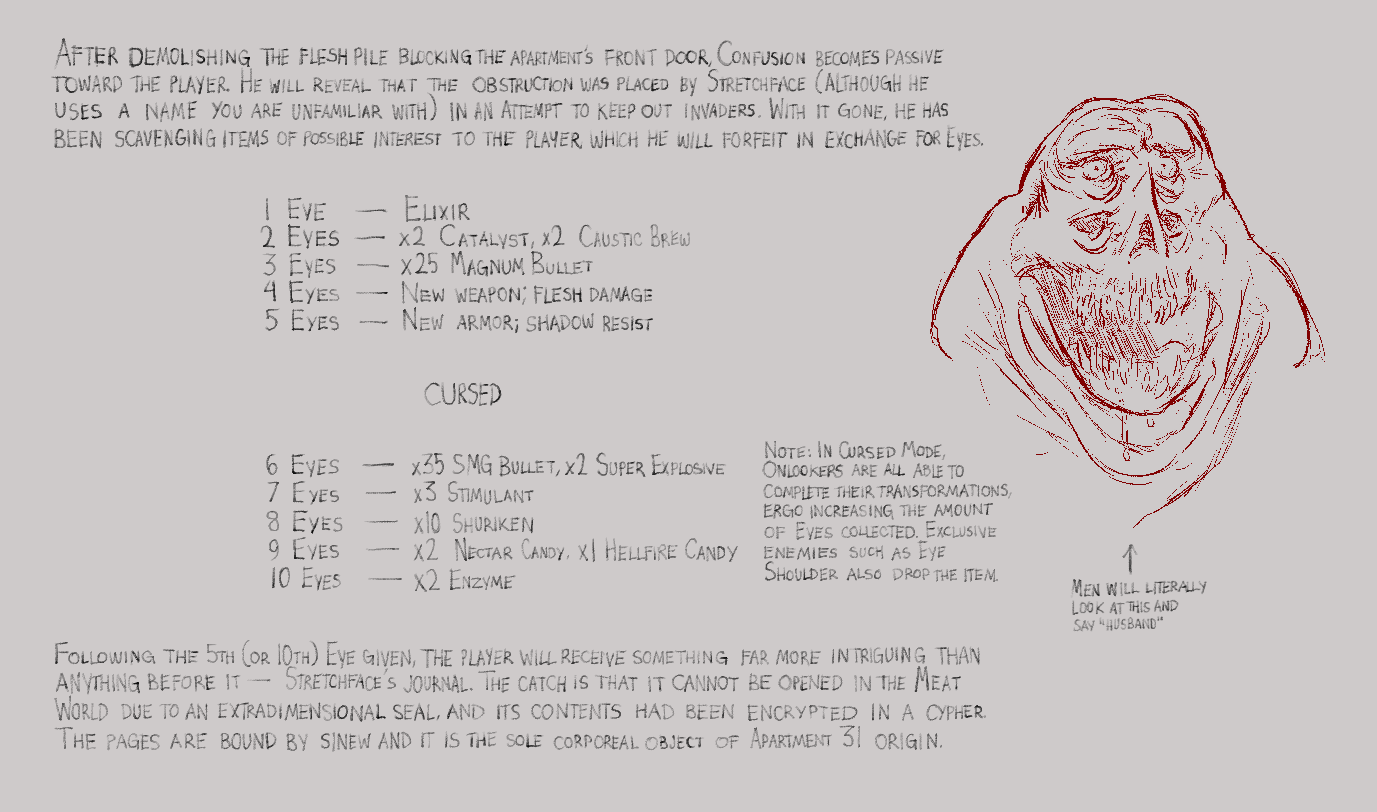 After demolishing the flesh pile blocking the apartment's front door, Confusion becomes passive
toward the player. He will reveal that the obstruction was placed by Stretchface (Although he
uses a name you are unfamiliar with) in an attempt to keep out invaders. With it gone, he has
been scavenging items of possible interest to the player, which he will forfeit in exchange for Eyes.
1 Eye — Elixir
2 Eyes — x2 Catalyst, x2 Caustic Brew
3 Eyes — x25 Magnum Bullet
4 Eyes — New weapon; flesh damage
5 Eyes — New armor; shadow resist
CURSED
6 Eyes — x35 SMG Bullet, x2 Super Explosive
7 Eyes — x3 Stimulant
8 Eyes — x10 Shuriken
9 Eyes — x2 Nectar Candy, x1 Hellfire Candy
10 Eyes — x2 Enzyme
Note: In Cursed Mode,
Onlookers are all able to
complete their transformations,
ergo increasing the amount
of Eyes collected. Exclusive
enemies such as Eye
Shoulder also drop the item.
Men will literally
look at this and
say "husband"
Following the 5th (or 10th) Eye given, the player will receive something far more intriguing than
anything before it — Stretchface's journal. The catch is that it cannot be opened in the Meat
World due to an extradimensional seal, and its contents had been encrypted in a cypher.
The pages are bound by sinew and it is the sole corporeal object of Apartment 31 origin.